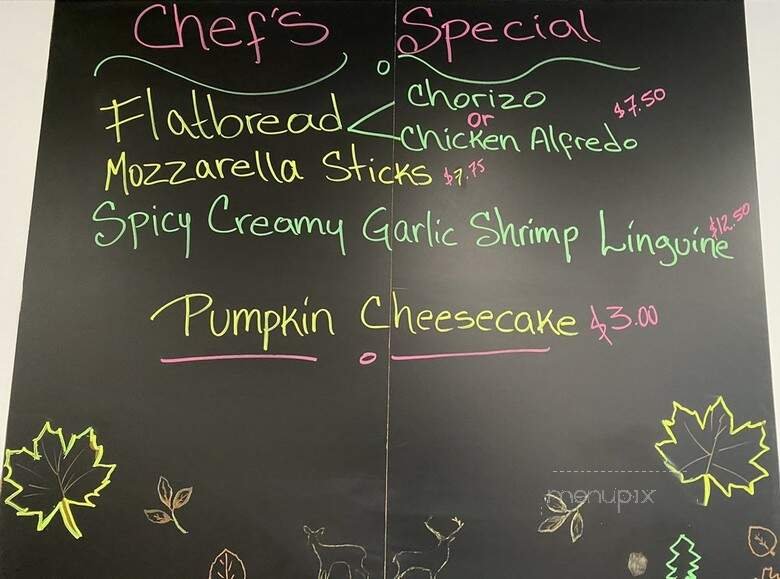 Chef's Special
Flatbread < Chorizo $7.50
or
Chicken Alfredo
Mozzarella Sticks $7.75
Spicy Creamy Garlic Shrimp Linguine $12.50
Pumpkin Cheesecake $3.00
menupix